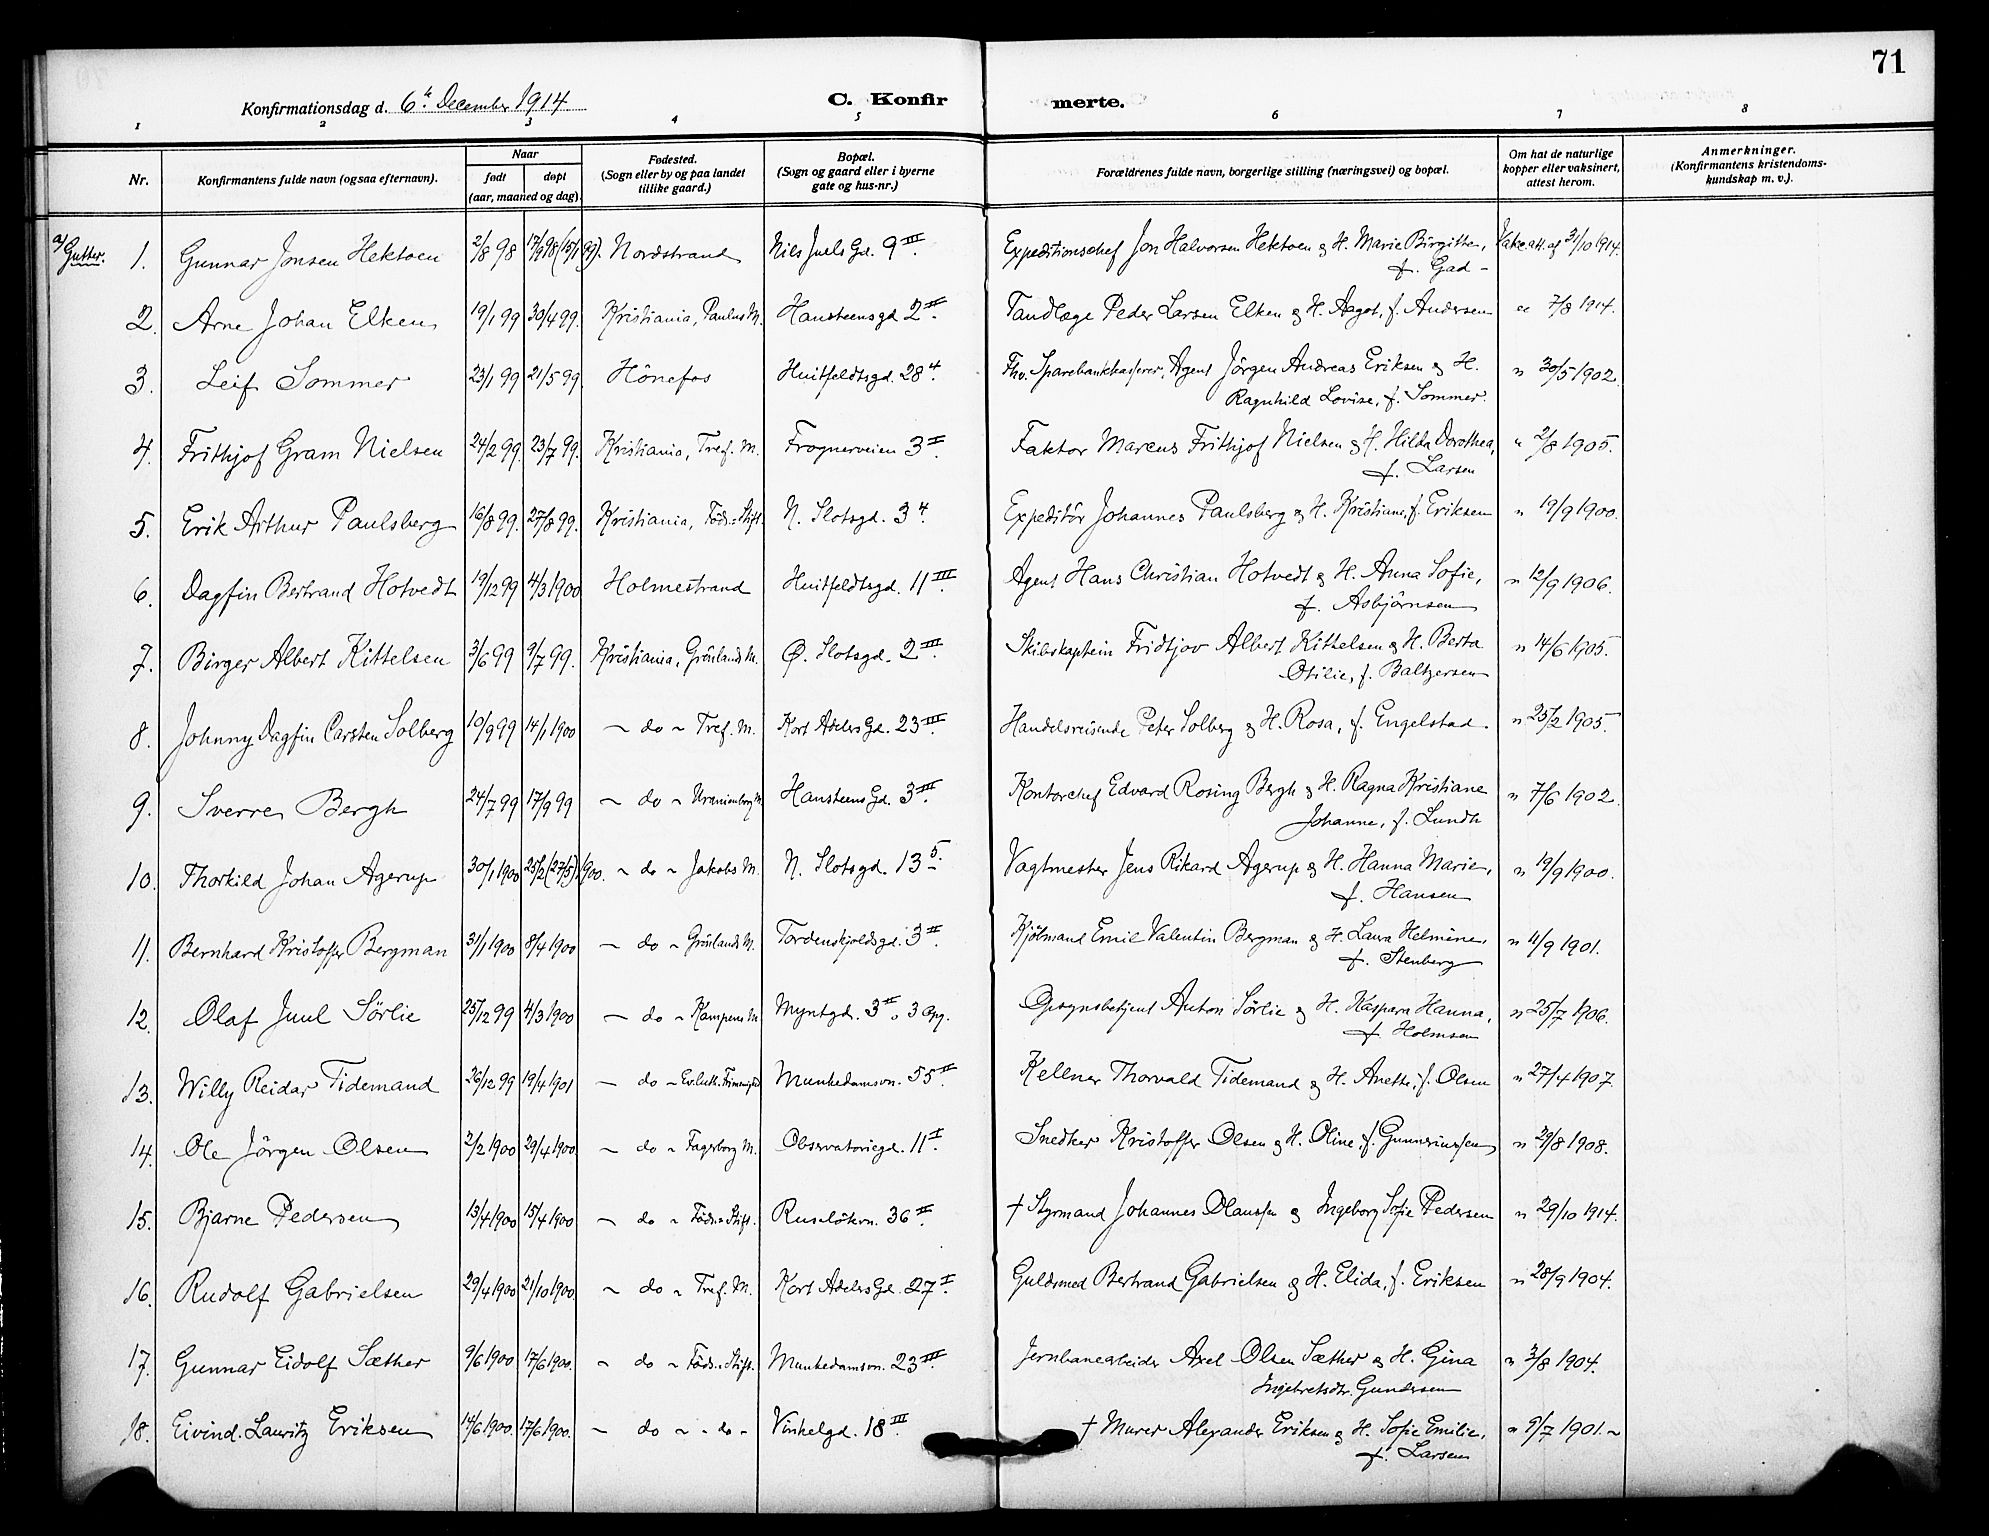 71
Konfirmationsdag d. 6te December 1914
C. Konfirmerte.
1 2 3 4 5 6 7 8
Nr.
Konfirmantens fulde navn (ogsaa efternavn).
Naar
født døpt
(aar, maaned og dag).
Fødested.
(Sogn eller by og paa landet
tillike gaard.)
Bopæl.
(Sogn og gaard eller i byerne
gate og hus-nr.)
Forældrenes fulde navn, borgerlige stilling (næringsvei) og bopæl.
Om hat de naturlige
kopper eller vaksinert,
attest herom.
Anmerkninger.
(Konfirmantens kristendoms-
kundskap m. v.).
a/ Gutter.
1. Gunnar Jonsen Hektoen 2/8 98 17/9 98 (15/1 99). Nordstrand Nils Juels Gd. 9 III. Expeditionschef Jon Halvorsen Hektoen & H. Marie Birgitte, Vakc. att. af 31/10 1914.
f. Gad -
2. Arne Johan Elken 19/1 99 30/4 99. Kristiania, Paulus M. Hansteensgd. 2 II. Tandlæge Peder Larsen Elken & H. Aagot, f. Andersen " 7/8 1914.
3. Leif Sommer 23/1 99 21/5 99. Hönefos Huitfeldtsgd. 28 4. Fhv. Sparebankkasserer, Agent Jörgen Andreas Eriksen & H. " 30/5 1902.
Ragnhild Lovise, f. Sommer.
4. Frithjof Gram Nielsen 24/2 99. 23/7 99. Kristiania, Tref. M. Frognerveien 3 II. Faktor Marcus Frithjof Nielsen & H. Hilda Dorothea, " 2/8 1905.
f. Larsen
5. Erik Arthur Paulsberg 16/8 99. 27/8 99. Kristiania, Föds.-Stift. N. Slotsgd. 3 4. Expeditör Johannes Paulsberg & H. Kristiane, f. Eriksen " 19/9 1900.
6. Dagfin Bertrand Hotvedt 19/12 99 4/3 1900 Holmestrand Huitfeldtsgd. 11 III. Agent Hans Christian Hotvedt & H. Anna Sofie, " 12/9 1906.
f. Asbjörnsen
7. Birger Albert Kittelsen 3/6 99 9/7 99. Kristiania, Grönlands M. Ø. Slotsgd. 2 III. Skibskaptein Fridtjov Albert Kittelsen & H. Berta " 14/6 1905.
Otilie, f. Baltzersen
8. Johnny Dagfin Carsten Solberg 10/9 99 14/1 1900 - do - Tref. M. Kort Adelers Gd. 23 III. Handelsreisende Peter Solberg & H. Rosa, f. Engelstad. " 25/2 1905.
9. Sverre Bergh 24/7 99 17/9 99 - do - Uranienborg M. Hansteens Gd. 3 III. Kontorchef Edvard Rosing Bergh & H. Ragna Kristiane " 7/6 1902.
Johanne, f. Lundh
10. Thorkild Johan Agerup 30/1 1900 25/2 (27/5) 1900. - do - Jakobs M. N. Slotsgd. 13 5. Vagtmester Jens Rikard Agerup & H. Hanna Marie, " 19/9 1900.
f. Hansen
11. Bernhard Kristoffer Bergman 31/1 1900 8/4 1900 - do - Grönlands M. Tordenskjoldsgd. 3 II. Kjölmand Emil Valentin Bergman & H. Laura Helmine, " 11/9 1901.
f. Stenberg
12. Olaf Juul Sörlie 25/12 99 4/3 1900 - do - Kampens M. Myntgd. 3 II, 3 opg. Opsynsbetjent Anton Sörlie & H. Kaspara Hanna, " 25/7 1906.
f. Holmsen
13. Willy Reidar Tidemand 26/12 99 19/4 1901 - do - Ev. luth. Frimenighed Munkedamsvn. 55 II. Kellner Thorvald Tidemand & H. Anette, f. Olsen " 27/4 1907.
14. Ole Jörgen Olsen 2/2 1900 29/4 1900. - do - Fagerborg M. Observatoriegd. 11 I. Snedker Kristoffer Olsen & H. Oline, f. Gunneriussen " 29/8 1908.
15. Bjarne Pedersen 13/4 1900 15/4 1900 - do - Föds.-Stift. Ruselökvn. 36 II. † Styrmand Johannes Olaussen & Ingeborg Sofie Pedersen " 29/10 1914.
16. Rudolf Gabrielsen 29/4 1900 21/10 1900 - do - Tref. M. Kort Adelers Gd. 27 I. Guldsmed Bertrand Gabrielsen & H. Elida, f. Eriksen " 28/9 1904.
17. Gunnar Eidolf Sæther 9/6 1900 17/6 1900. - do - Föds.-Stift. Munkedamsvn. 23 III Jernbanearbeider Axel Olsen Sæther & H. Gina " 3/8 1904.
Ingebretsdtr. Gundersen
18. Eivind. Lauritz Eriksen 14/6 1900. 17/6 1900. - do - - do - Vinkelgd. 18 III. † Murer Alexander Eriksen & H. Sofie Emilie, " 5/7 1901. -
f. Larsen